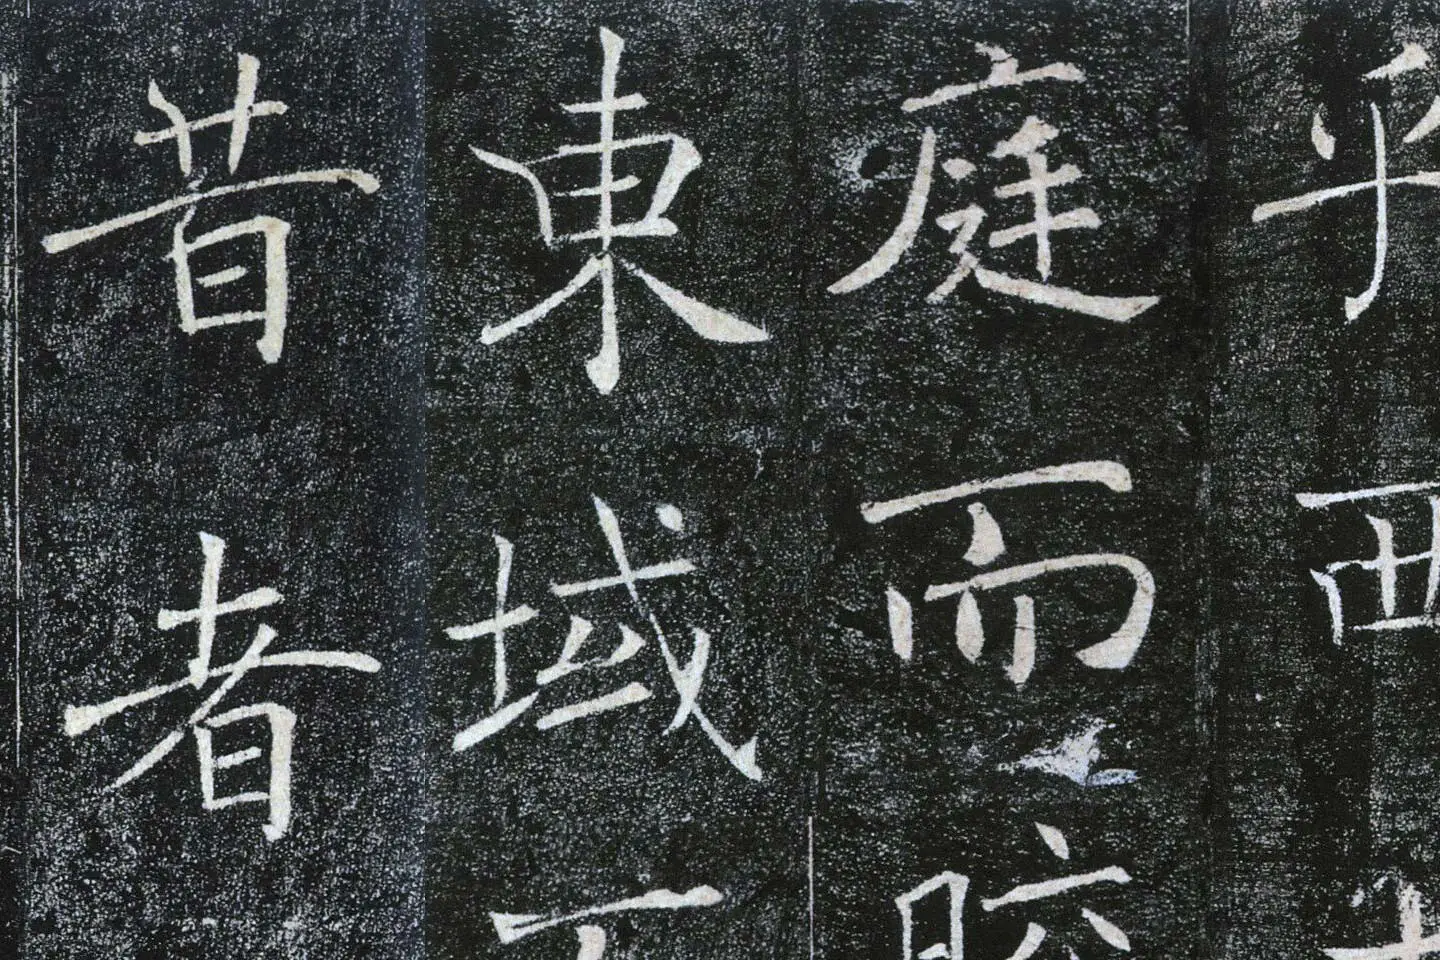 乎西
庭而皎
東域
昔者